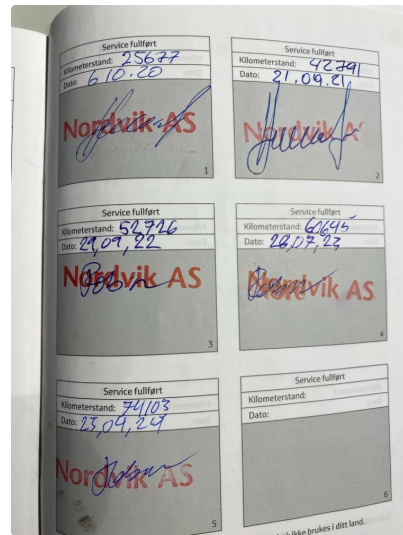 Service fullført
Kilometerstand: 25677
Dato: 6.10.20
Nordvik AS
1
Service fullført
Kilometerstand: 42791
Dato: 21.09.21
Nordvik A
2
Service fullført
Kilometerstand: 52726
Dato: 29,09,22
Nordvik AS
3
Service fullført
Kilometerstand: 60645
Dato: 28,07,23
Nordvik AS
4
Service fullført
Kilometerstand: 74103
Dato: 23,04,24
Nordvik AS
5
Service fullført
Kilometerstand:
Dato:
6
ikke brukes i ditt land.